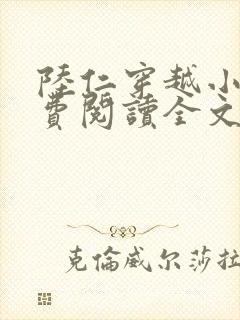 陸仁穿越小
費閱讀全文
克倫威尔莎拉